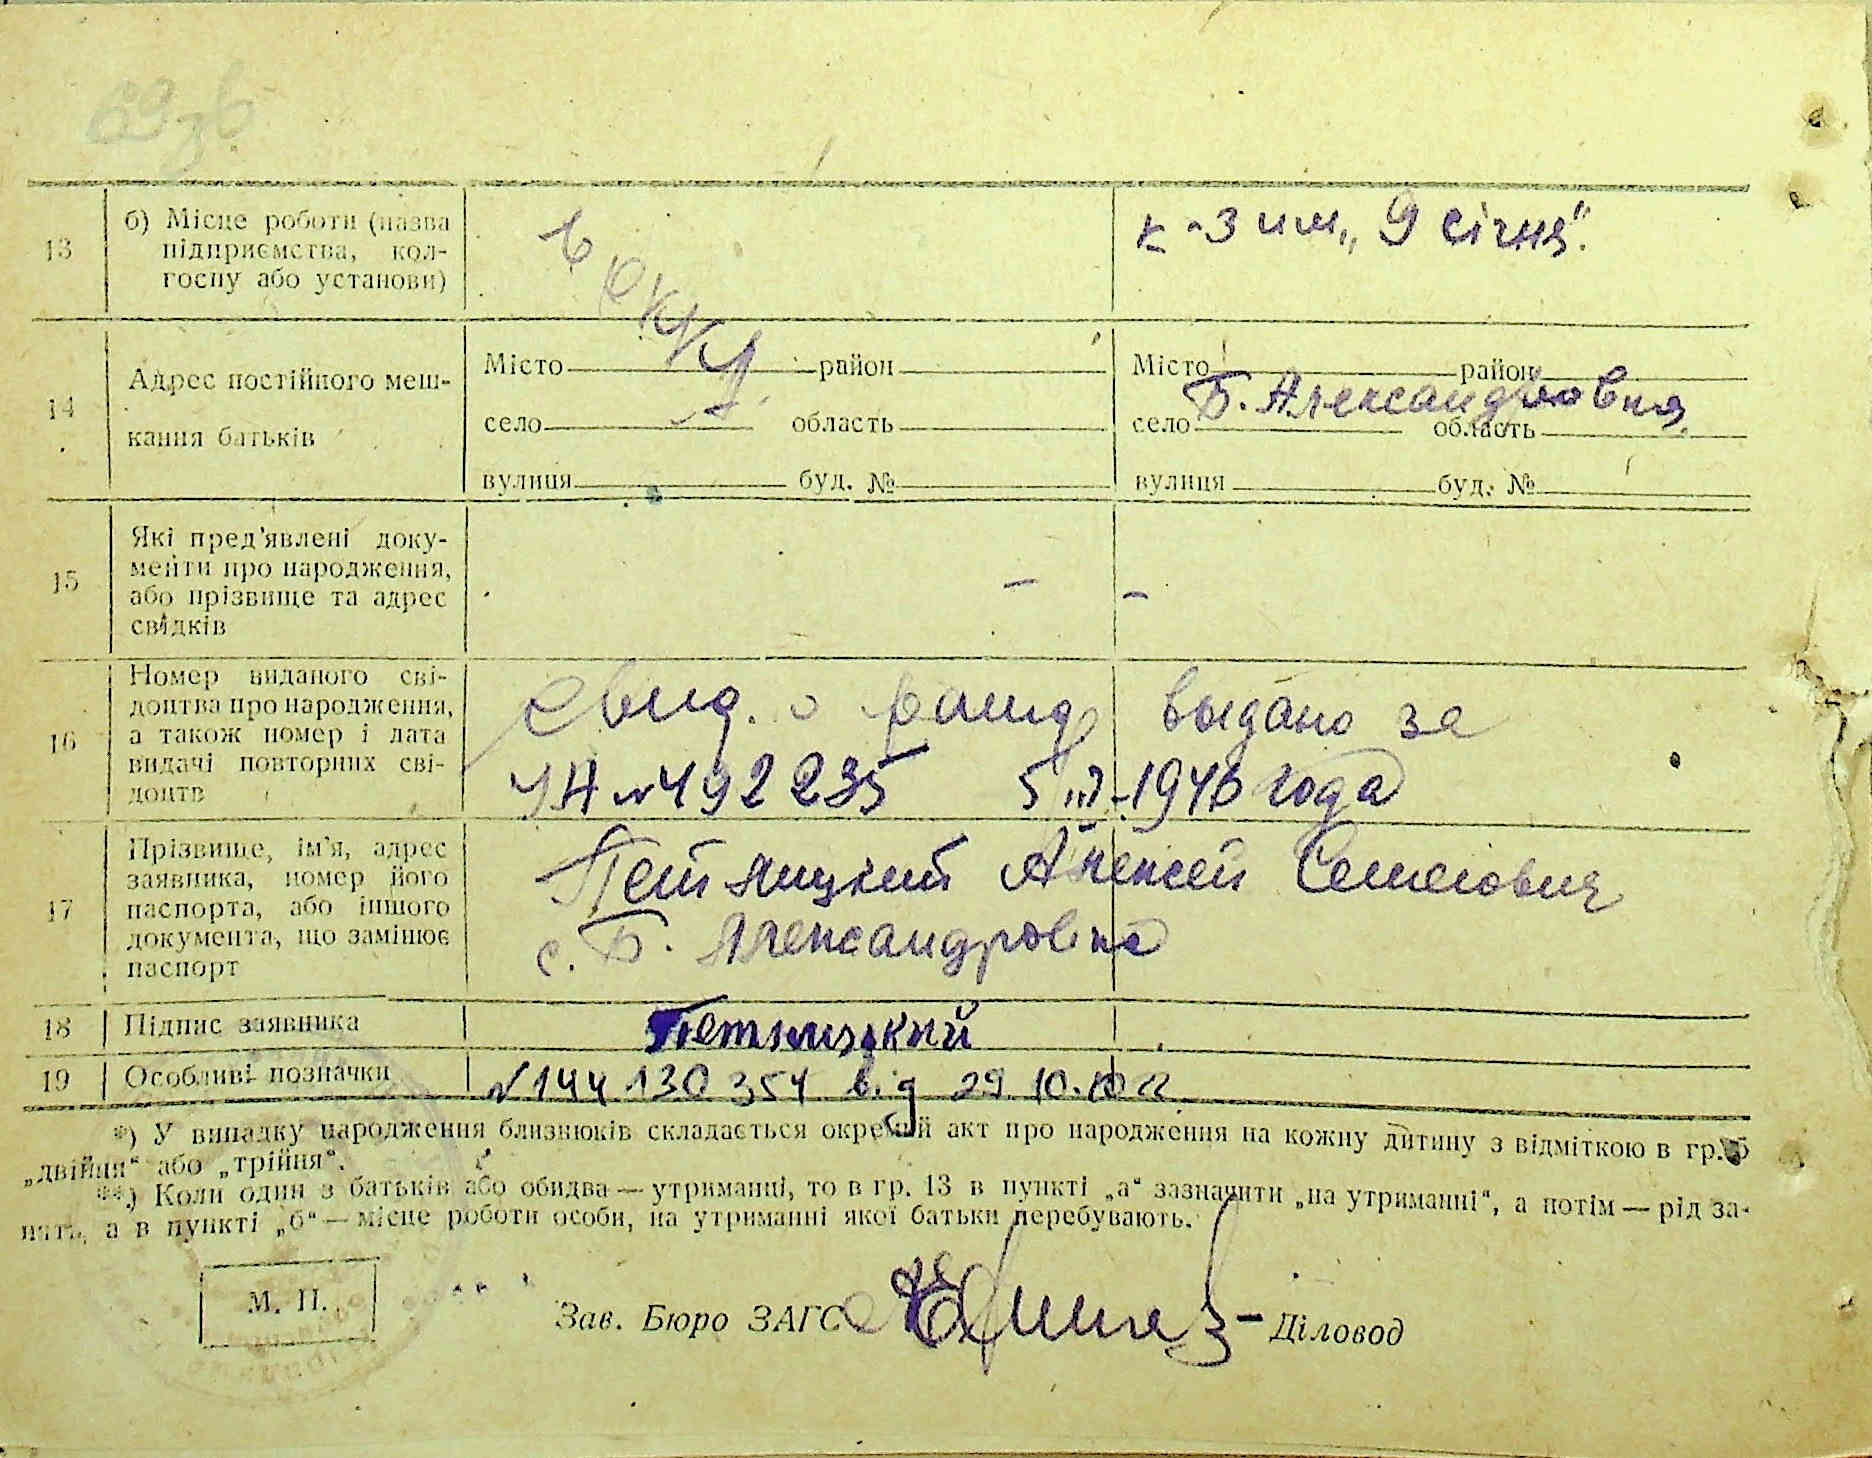 69 зв
13 б) Місце роботи (назва
підприємства, кол-
госпу або установи)
в РККА
к-з им „9 січня“.
14 Адрес постійного меш-
кання батьків
Місто район
село область
вулиця буд. №
Місто район
село Б. Александровка область
вулиця буд. №
15 Які пред'явлені доку-
менти про народження,
або прізвище та адрес
свідків
— —
16 Номер виданого сві-
доцтва про народження,
а також номер і дата
видачі повторних сві-
доцтв
Свид. о рожд выдано за
УА № 492235 5 III-1946 года
17 Прізвище, ім'я, адрес
заявника, номер його
паспорта, або іншого
документа, що замінює
паспорт
Алексей Семенович
с. Б. Александровка
18 Підпис заявника
19 Особливі позначки № 144130354 від 29.10.10
*) У випадку народження близнюків складається окремий акт про народження на кожну дитину з відміткою в гр. 5
„двійни“ або „трійня“.
**) Коли один з батьків або обидва — утриманці, то в гр. 13 в пункті „а“ зазначити „на утриманні“, а потім — рід за-
нять, а в пункті „б“ — місце роботи особи, на утриманні якої батьки перебувають.
М. П.
Зав. Бюро ЗАГС Діловод